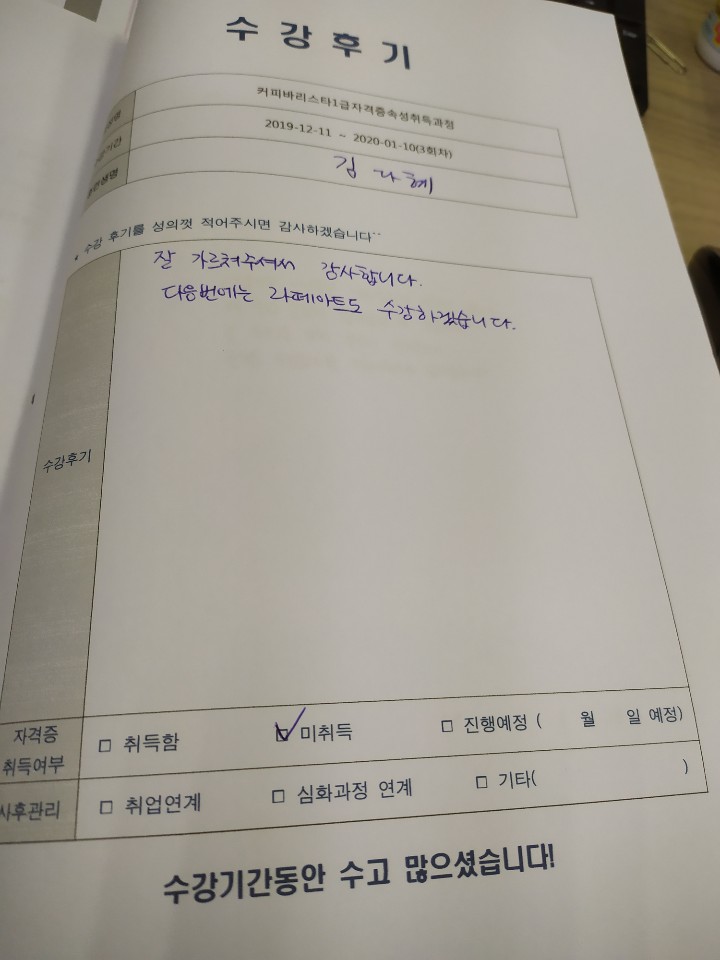 수강후기
커피바리스타1급자격증속성취득과정
기간 2019-12-11 ~ 2020-01-10(3회차)
김다혜
* 수강 후기를 성의껏 적어주시면 감사하겠습니다~~
잘 가르쳐주셔서 감사합니다.
다음번에는 라떼아트도 수강하겠습니다.
수강후기
자격증 취득여부 □ 취득함 ☑ 미취득 □ 진행예정 ( 월 일 예정)
사후관리 □ 취업연계 □ 심화과정 연계 □ 기타( )
수강기간동안 수고 많으셨습니다!